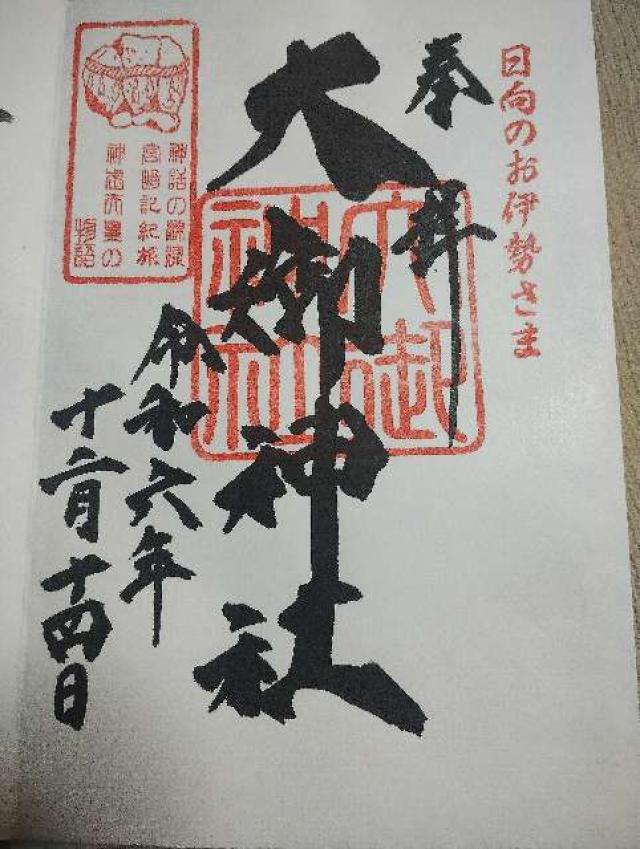 日向のお伊勢さま
奉拝
大御神社
大御
神社
令和六年
十二月十四日
神話の源流
宮崎記紀旅
神虚火豊の
物語